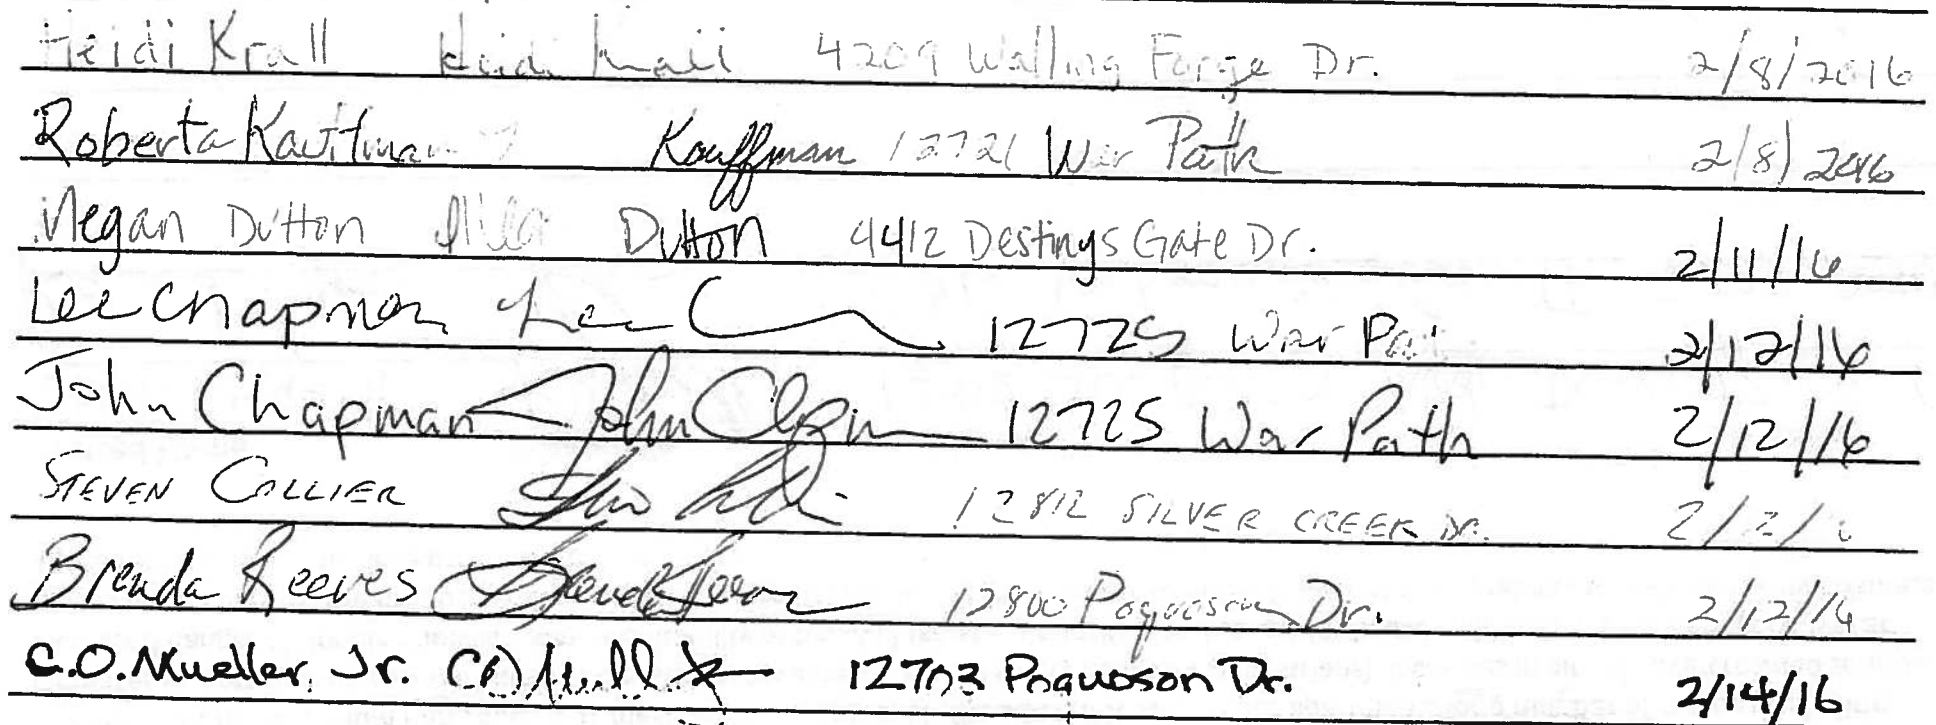 Heidi Krall Heidi Krall 4209 Walling Forge Dr. 2/8/2016
Roberta Kauffman Kauffman 12721 War Path 2/8/2016
Megan Dutton Dutton 4412 Destinys Gate Dr. 2/11/16
Lee Chapman Lee C 12725 War Pat 2/12/16
John Chapman John Chapman 12725 War Path 2/12/16
STEVEN COLLIER 12812 SILVER CREEK DR. 2/2/
Brenda Reeves Brenda Reeves 12800 Poquoson Dr. 2/12/16
C.O. Mueller, Jr. 12703 Poquoson Dr. 2/14/16